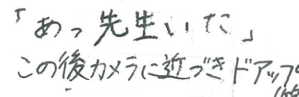 「あっ先生いた」
この後カメラに近づきドアップ